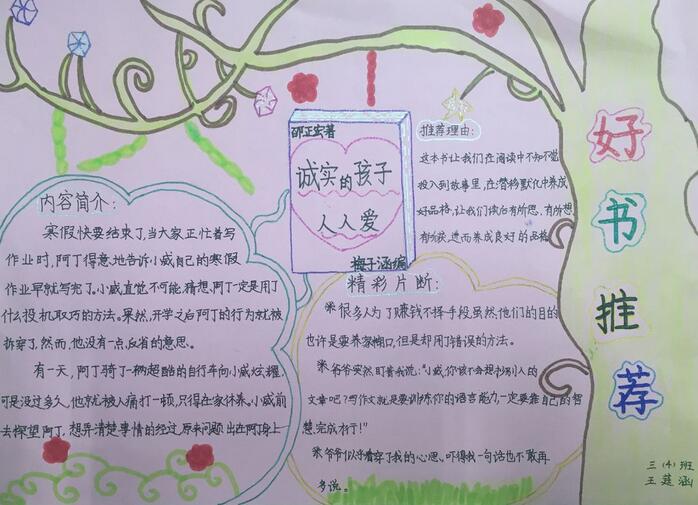 好书推荐
邵正宏著
诚实的孩子
人人爱
梅子涵编
推荐理由:
这本书让我们在阅读中不知不觉
投入到故事里,在潜移默化中养成
好品格,让我们读后有所思、有所想、
有所获,进而养成良好的品格。
内容简介:
寒假快要结束了,当大家正忙着写
作业时,阿丁得意地告诉小威自己的寒假
作业早就写完了。小威直觉不可能,猜想,阿丁一定是用了
什么投机取巧的方法。果然,开学之后阿丁的行为就被
拆穿了,然而,他没有一点反省的意思。
有一天,阿丁骑了一辆超酷的自行车向小威炫耀,
可是没过多久,他就被人痛打一顿,只得在家休养。小威前
去探望阿丁,想弄清楚事情的经过,原来问题出在阿丁身上…
精彩片断:
※很多人为了赚钱不择手段虽然,他们的目的
也许是要养家糊口,但是却用了错误的方法。
※爷爷突然盯着我说:“小威,你该不会想抄别人的
文章吧?写作文就是要训练你的语言能力,一定要靠自己的智
慧完成才行!”
※爷爷似乎看穿了我的心思,吓得我一句话也不敢再
多说。
三(4)班
王莛涵